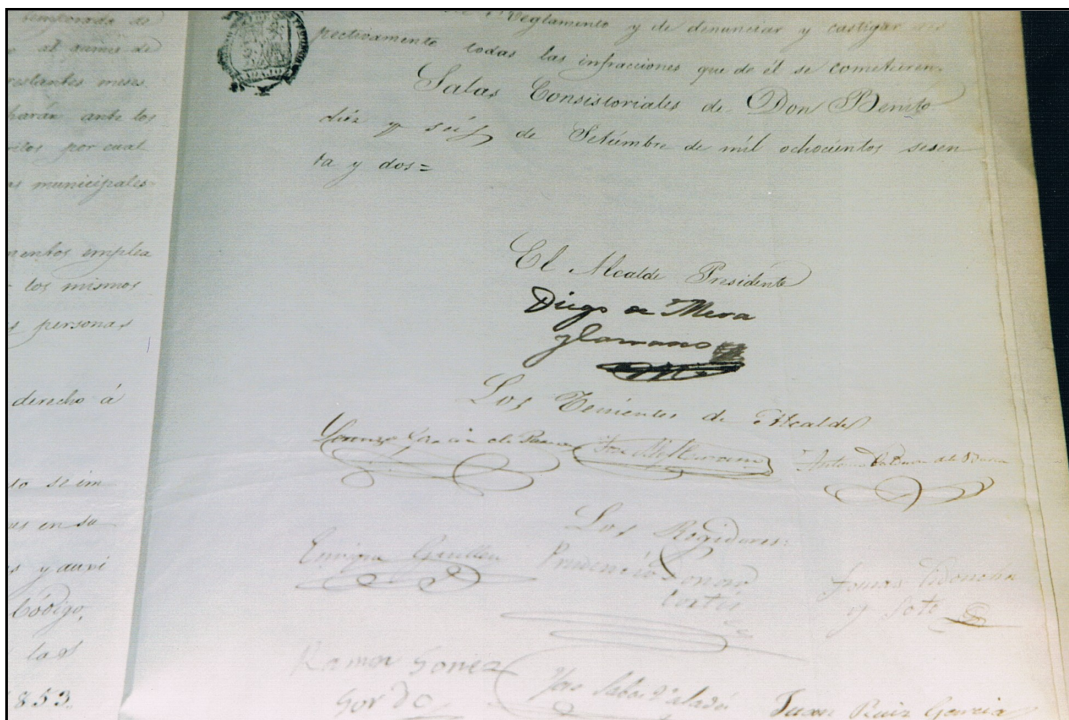 temporada de
al quince de
restantes meses
harán ante los
por cual
municipales
emplea
los mismos
personas
derecho á
se im
en su
Código,
las
1853.
Reglamento y de denunciar y castigar res
pectivamente todas las infracciones que de él se cometieren.
Salas Consistoriales de Don Benito
diez y seis de Setiembre de mil ochocientos sesen
ta y dos=
El Alcalde Presidente
Diego de Mera
Los Tenientes de Alcalde
Lorenzo
Antonio
Los Regidores:
Enrique Guillen
Prudencio Donoso
Cortés
Tomas
y Soto
Ramon Gomez
Gordo
Juan Ruiz Garcia